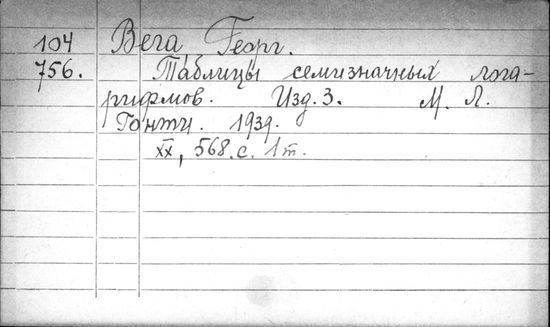 104 Вега, Георг.
756. Таблицы семизначных лога-
рифмов. Изд. 3. М. Л.
Гонти. 1939.
XX, 568. с. 1 т.